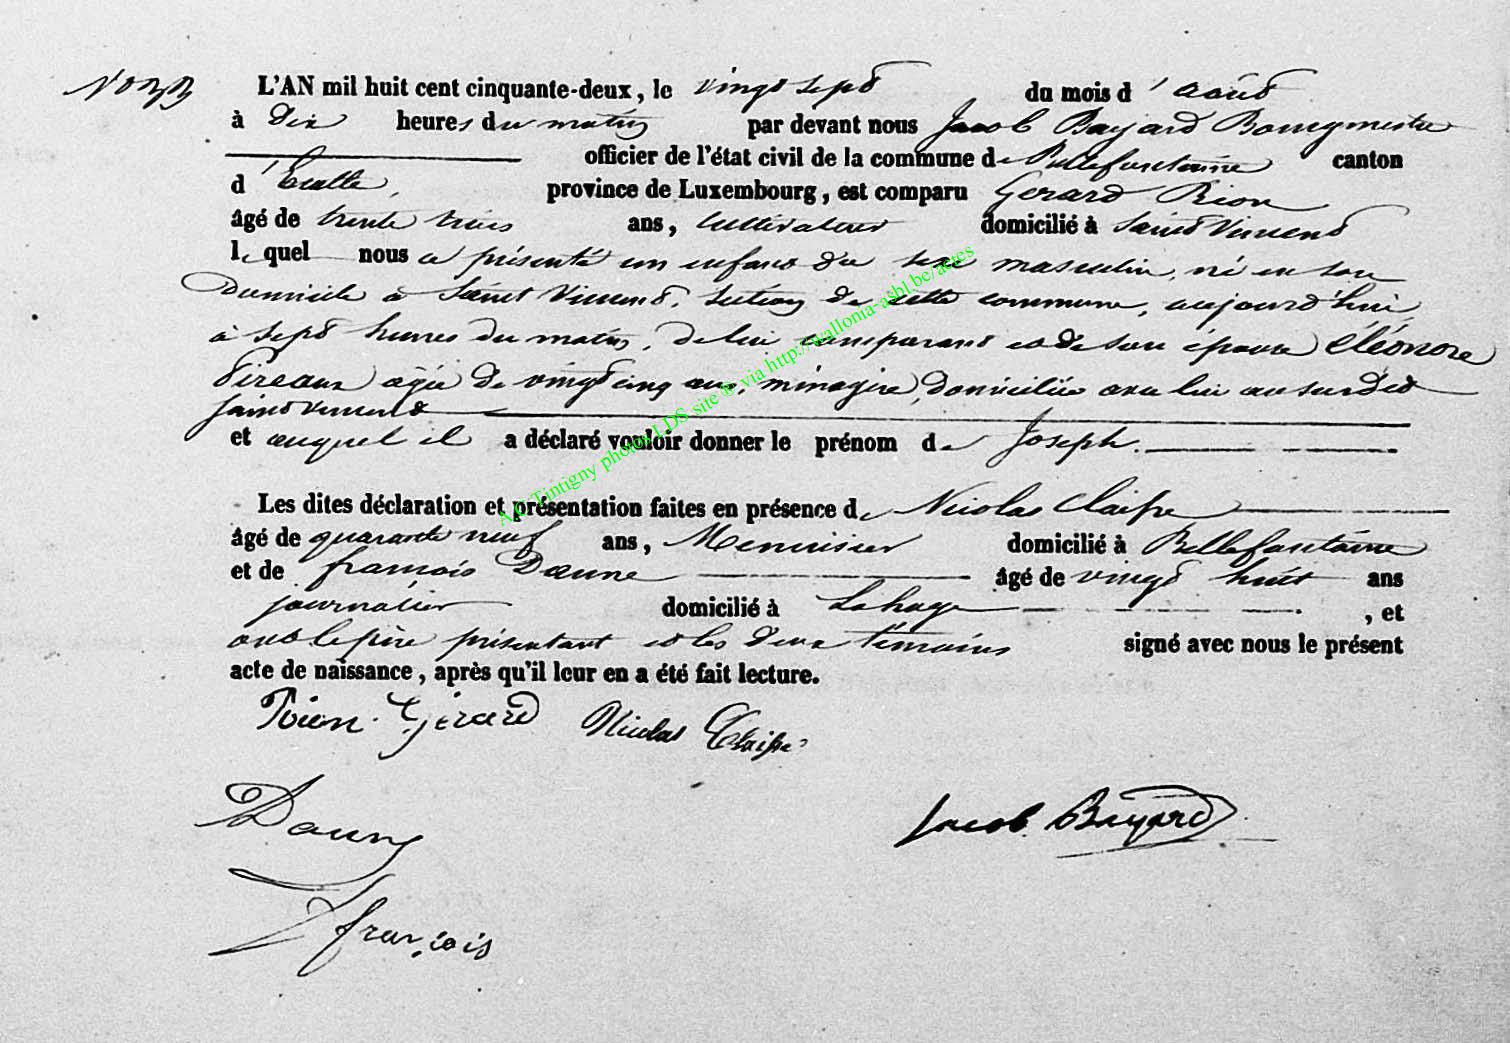 N° 33
L'AN mil huit cent cinquante-deux, le vingt sept du mois d'août
à Dix heures du matin par devant nous Jacob Bayard Bourgmestre
officier de l'état civil de la commune de Bellefontaine canton
d'Etalle, province de Luxembourg, est comparu Gerard Rion
âgé de trente trois ans, Cultivateur domicilié à Saint Vincent
lequel nous a présenté un enfant du sexe masculin, né en son
Domicile à Saint Vincent, section de cette commune, aujourd'hui
à sept heures du matin, de lui comparant et de son épouse éléonore
Pireaux agée de vingt cinq ans, ménagère, domiciliée avec lui au susdit
Saint Vincent
et auquel il a déclaré vouloir donner le prénom de Joseph.
Les dites déclaration et présentation faites en présence de Nicolas Claisse
âgé de quarante neuf ans, Menuisier domicilié à Bellefontaine
et de françois Daune âgé de vingt huit ans
journalier domicilié à Lahage, et
ont le père présentant et les deux témoins signé avec nous le présent
acte de naissance, après qu'il leur en a été fait lecture.
Rion Gérard Nicolas Claisse
Daune
françois
Jacob Bayard
Tintigny photos LDS site @ via http://wallonia-asbl.be/actes